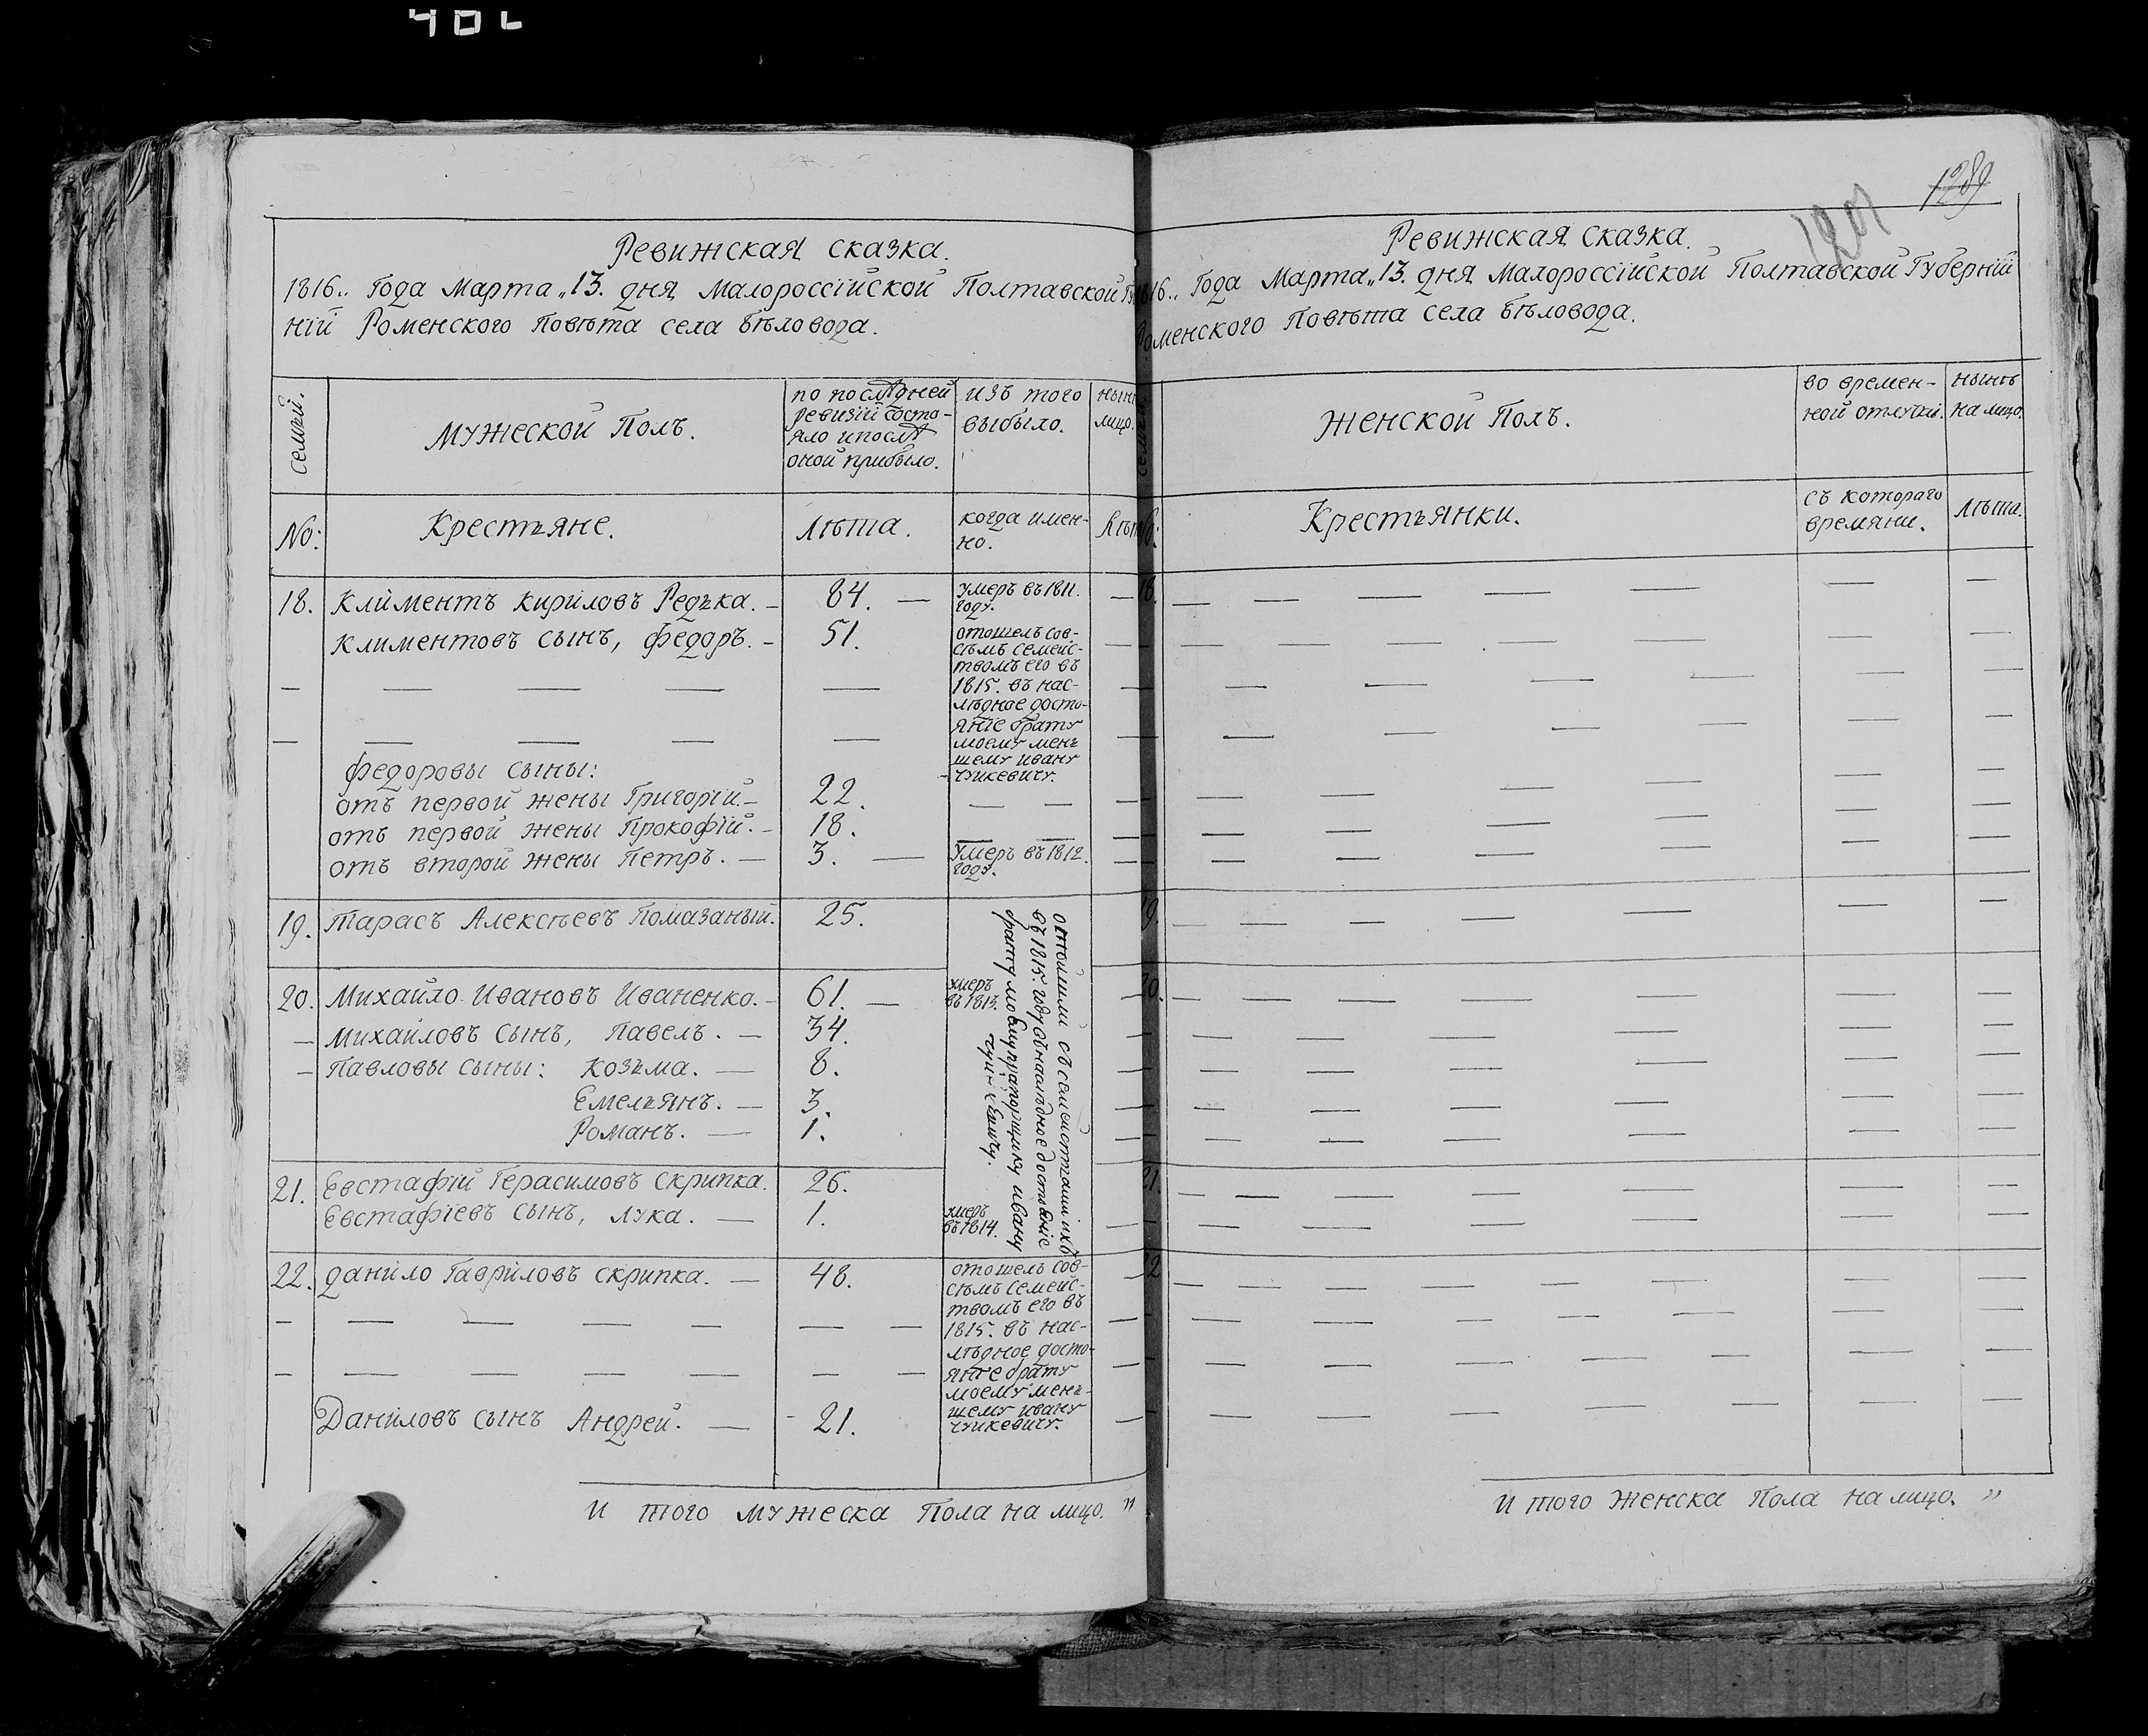 402
Ревижская сказка.
1816.. Года Марта „13. дня Малороссійской Полтавской Гу
ній Роменского Повѣта села Бѣловода.
семьи.
Мужеской Полъ.
по послѣдней
ревизіи состо-
яло и послѣ
оной прибыло.
изъ того
выбыло.
нынѣ
лицо.
No:
Крестьяне.
Лѣта.
когда имен-
но.
Лѣта
18. Климентъ Кириловъ Редька. — 84. — умеръ въ 1811.
году.
Климентовъ сынъ, Федоръ. — 51.
отошелъ сов-
сѣмъ семейс-
твомъ его въ
1815. въ нас-
лѣдное досто-
яніе брату
моему мень
шему Ивану
Чуйкевичу.
Федоровы сыны:
отъ первой жены Григорій. — 22. — —
отъ первой жены Прокофій. — 18. — —
отъ второй жены Петръ. — 3. — Умеръ въ 1812.
году.
19. Тарасъ Алексѣевъ Помазаный. 25.
отойшли съ семействами ихъ
въ 1815. году въ наслѣдное достояніе
брату моему прапорщику Ивану
Чуйкевичу.
20. Михайло Ивановъ Иваненко. — 61. — умеръ
въ 1813.
— Михайловъ сынъ, Павелъ. — 34.
— Павловы сыны: Козьма. — 8.
Емельянъ. — 3.
Романъ. — 1.
21. Евстафій Герасимовъ Скрипка. 26.
Евстафіевъ сынъ, Лука. — 1. умеръ
въ 1814.
22. Данило Гавриловъ Скрипка. — 48.
отошелъ сов-
сѣмъ семейс-
твомъ его въ
1815. въ нас-
лѣдное досто-
яніе брату
моему мень-
шему Ивану
Чуйкевичу.
Даниловъ сынъ Андрей. — 21.
И того мужеска Пола на лицо. "
1289
Ревижская сказка.
1816.. Года Марта „13. дня Малороссійской Полтавской Губерній
Роменского Повѣта села Бѣловода.
семьи.
Женской Полъ.
во времен-
ной отлучкѣ.
нынѣ
на лицо.
No:
Крестьянки.
съ котораго
времяни.
Лѣта.
18.
19.
20.
21.
22
И того Женска Пола на лицо. "